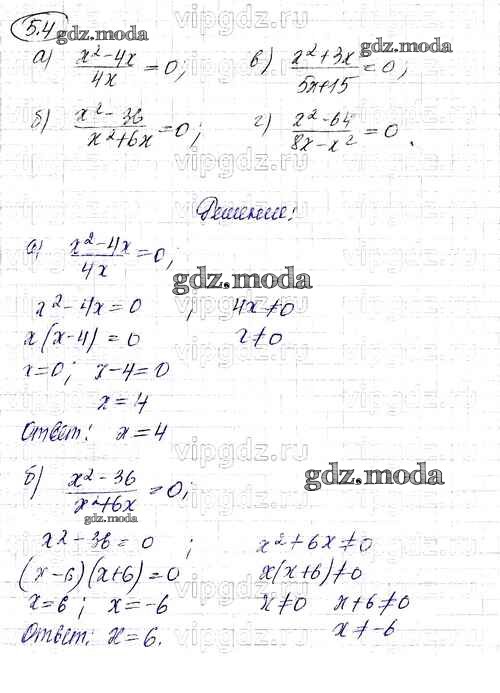 5.4 gdz.moda
а) (x²-4x)/(4x) = 0; в) (x²+3x)/(5x+15) = 0;
б) (x²-36)/(x²+6x) = 0; г) (x²-64)/(8x-x²) = 0.
Решение:
а) (x²-4x)/(4x) = 0;
gdz.moda
x²-4x=0 ; 4x≠0
x(x-4)=0 x≠0
x=0; x-4=0
x=4
Ответ: x=4
б) (x²-36)/(x²+6x) = 0;
gdz.moda
gdz.moda
x²-36=0 ; x²+6x≠0
(x-6)(x+6)=0 x(x+6)≠0
x=6; x=-6 x≠0 x+6≠0
Ответ: x=6. x≠-6
vipgdz.com